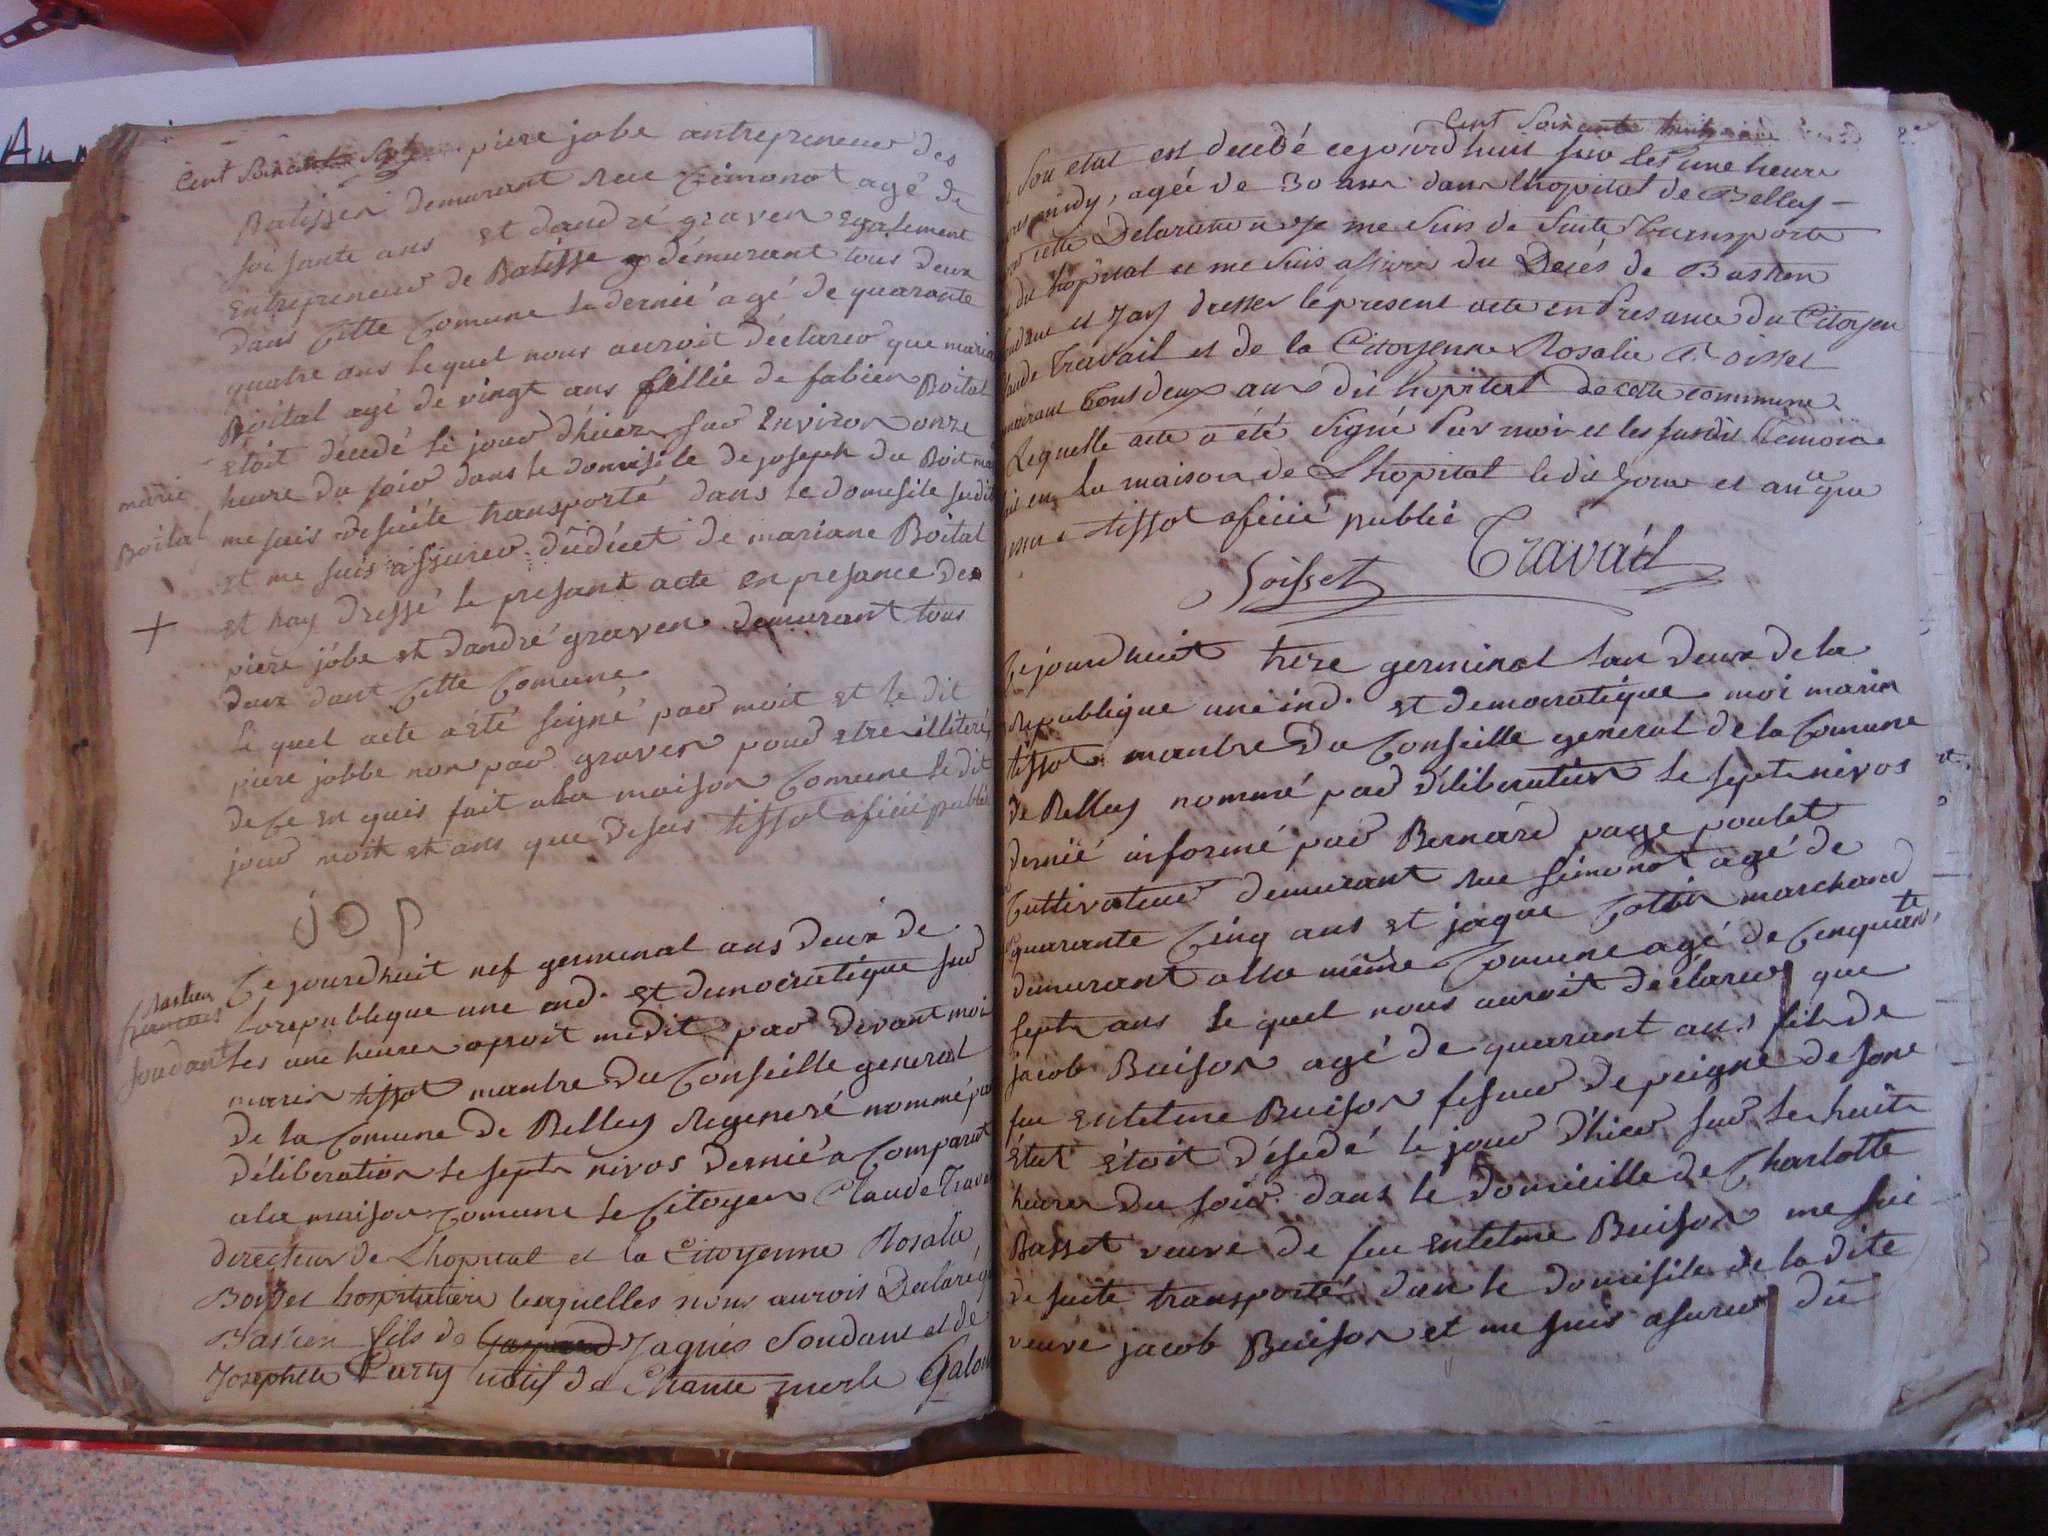 Cent Soixante Sept
piere jobe antrepreneur des
Batisser demurant Rue Simonot agé de
soisante ans et dandré graven egalement
Entrepreneur de Batisse démurant tous deux
dans Cette Comune le dernié agé de quarante
quatre ans lequel nous auroit déclarer que
Boital agé de vingt ans fillie de fabien Boital
étoit décedé le jour d'hier sur Environ onze
heure du soir dans le domisile de joseph du
me suis desuite transporté dans le domesile sudit
et me suis assurer du décet de mariane Boital
et hay dressé le present acte en presance de
piere jobe et dandré graven demurant tous
deux dant Cette Comune
le quel acte a été seigné par moit et le dit
piere jobbe non par graven pour etre illiteré
de Ce enquis fait ala maison Comune le dit
jour moit et ans que desus tissot oficié publié
marie
Boital
jop
Bastien
francois
soudant
Ce jourdhuit nef germinal ans deux de
larepublique une ind. et democratique sur
les une heure aproit midit par devant moi
marin tissot manbre du Conseille general
de la Comune de Belley Regeneré nommé par
déliberation le sept nivos dernié a Comparut
ala maison Comune le Citoyen Claude Trava
directeur de Lhopital et la Citoyenne Rosalie
hospitaliere lesquelles nous aurois Déclaré
Bastien fils de Jaques Soudant et de
Josephte natif de Chante merle
Cent Soixante huit
Son etat est decedé cejourdhuit sur les une heure
midy, agée de 30 ans dans l'hopital de Belley
cette Declaration je me suis de suite transporté
du hopital et me suis assuré du Decés de Bastien
et Jay dresser le present acte en Presance du Citoyen
Travail et de la Citoyenne Rosalie
tous deux au dit hopital de cette commune
Lequelle acte a été signé Par moi et les susdit temoin
en la maison de Lhopital ledit jour et an que
tissot oficié publié
Soisset Travail
Cejourdhuit treze germinal lan deux de la
Republique une ind. et democratique moi marin
tissot manbre du Conseille general de la Comune
de Belley nommé par déliberation le sept nivos
dernié informé par Bernard page poulet
Cultivateur demurant rue simonot agé de
quarante Cinq ans et jaque Cottin marchand
demurant alla même Comune agé de Cinquante
sept ans le quel nous auroit déclarer que
jacob Buison agé de quarant ans fils de
feu Entelme Buison feseur de peigne de sone
état étoit désedé le jour d'hier sur les huit
heures du soir dans le domicille de Charlotte
Basset veuve de feu Entelme Buison me sui
de suite transporté dan le domisile de la dite
veuve jacob Buison et me suis asurer du